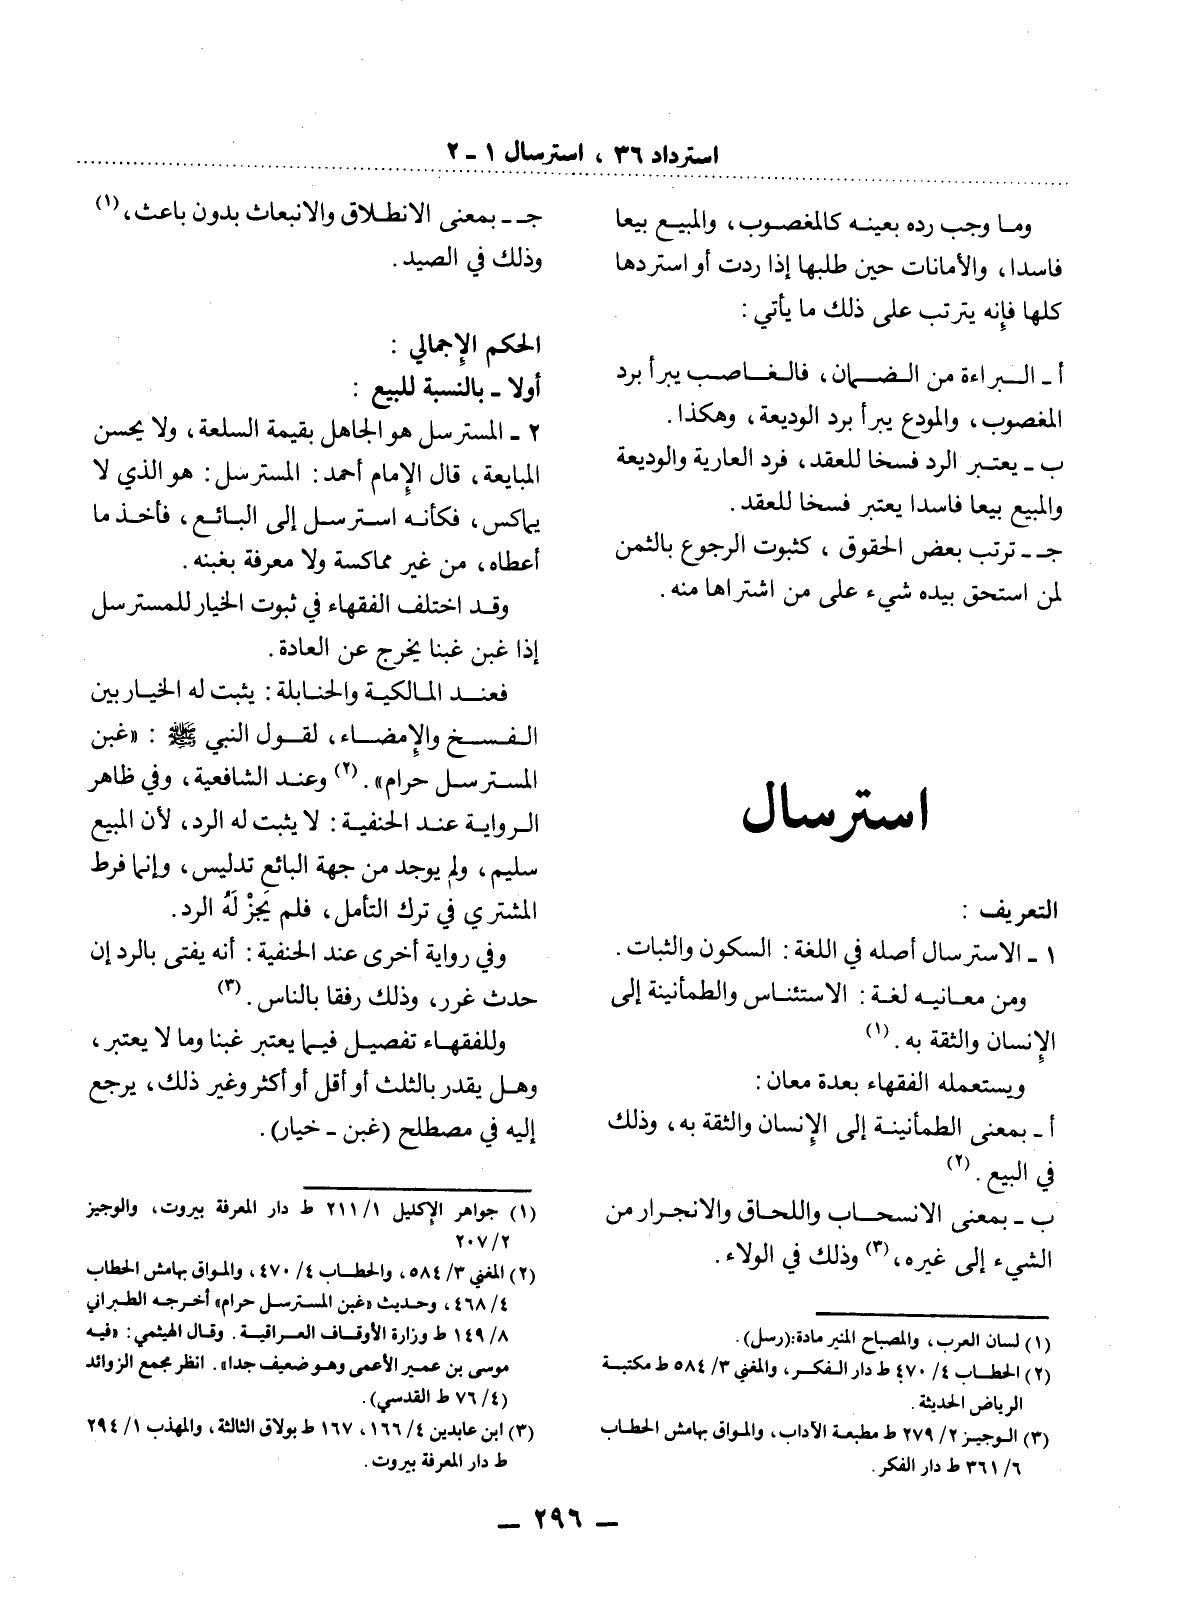 استرداد ٣٦ ، استرسال ١ - ٢
وما وجب رده بعينه كالمغصوب، والمبيع بيعا
فاسدا، والأمانات حين طلبها إذا ردت أو استردها
كلها فإنه يترتب على ذلك ما يأتي :
أ ـ البراءة من الضمان، فالغاصب يبرأ برد
المغصوب، والمودع يبرأ برد الوديعة، وهكذا.
ب ـ يعتبر الرد فسخا للعقد، فرد العارية والوديعة
والمبيع بيعا فاسدا يعتبر فسخا للعقد.
جـ ـ ترتب بعض الحقوق ، كثبوت الرجوع بالثمن
لمن استحق بيده شيء على من اشتراها منه.
استرسال
التعريف :
١ ـ الاسترسال أصله في اللغة : السكون والثبات .
ومن معانيه لغة : الاستئناس والطمأنينة إلى
الإنسان والثقة به . (١)
ويستعمله الفقهاء بعدة معان :
أ ـ بمعنى الطمأنينة إلى الإنسان والثقة به، وذلك
في البيع . (٢)
ب ـ بمعنى الانسحاب واللحاق والانجرار من
الشيء إلى غيره، (٣) وذلك في الولاء .
(١) لسان العرب، والمصباح المنير مادة:(رسل).
(٢) الحطاب ٤/ ٤٧٠ ط دار الفكر، والمغني ٣/ ٥٨٤ ط مكتبة
الرياض الحديثة .
(٣) الوجيز ٢/ ٢٧٩ ط مطبعة الآداب، والمواق بهامش الحطاب
٦/ ٣٦١ ط دار الفكر.
جـ ـ بمعنى الانطلاق والانبعاث بدون باعث، (١)
وذلك في الصيد .
الحكم الإجمالي :
أولا ـ بالنسبة للبيع :
٢ ـ المسترسل هو الجاهل بقيمة السلعة، ولا يحسن
المبايعة، قال الإمام أحمد : المسترسل : هو الذي لا
يماكس، فكأنه استرسل إلى البائع، فأخذ ما
أعطاه، من غير مماكسة ولا معرفة بغبنه .
وقد اختلف الفقهاء في ثبوت الخيار للمسترسل
إذا غبن غبنا يخرج عن العادة .
فعند المالكية والحنابلة : يثبت له الخيار بين
الفسخ والإمضاء، لقول النبي ﷺ : «غبن
المسترسل حرام». (٢) وعند الشافعية، وفي ظاهر
الرواية عند الحنفية : لا يثبت له الرد، لأن المبيع
سليم، ولم يوجد من جهة البائع تدليس، وإنما فرط
المشتري في ترك التأمل، فلم يَجزْ لَهُ الرد.
وفي رواية أخرى عند الحنفية : أنه يفتى بالرد إن
حدث غرر، وذلك رفقا بالناس . (٣)
وللفقهاء تفصيل فيما يعتبر غبنا وما لا يعتبر،
وهل يقدر بالثلث أو أقل أو أكثر وغير ذلك، يرجع
إليه في مصطلح (غبن ـ خيار).
(١) جواهر الإكليل ١/ ٢١١ ط دار المعرفة بيروت، والوجيز
٢/ ٢٠٧
(٢) المغني ٣/ ٥٨٤، والحطاب ٤/ ٤٧٠، والمواق بهامش الحطاب
٤/ ٤٦٨، وحديث «غبن المسترسل حرام» أخرجه الطبراني
٨/ ١٤٩ ط وزارة الأوقاف العراقية . وقال الهيثمي : «فيه
موسى بن عمير الأعمى وهو ضعيف جدا». انظر مجمع الزوائد
(٤/ ٧٦ ط القدسي).
(٣) ابن عابدين ٤/ ١٦٦، ١٦٧ ط بولاق الثالثة، والمهذب ١/ ٢٩٤
ط دار المعرفة بيروت .
ـ ٢٩٦ ـ